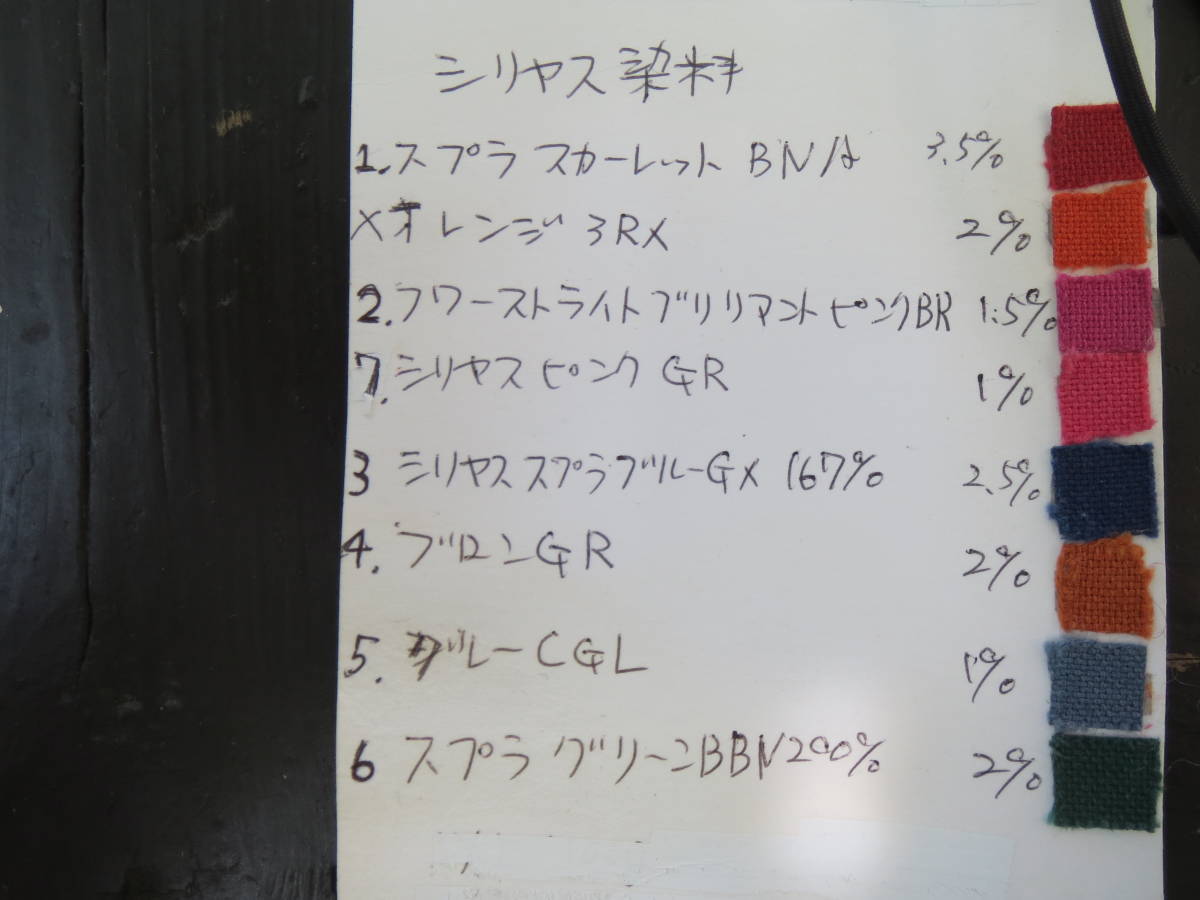 シリヤス染料
1.スプラ スカーレット BN/A 3.5%
Xオレンジ 3RX 2%
2.フワーストライトブリリアントピンクBR 1.5%
7.シリヤスピンク GR 1%
3 シリヤススプラブルーGX 167% 2.5%
4.ブロンGR 2%
5.ブルーCGL 1%
6 スプラ グリーンBBN200% 2%